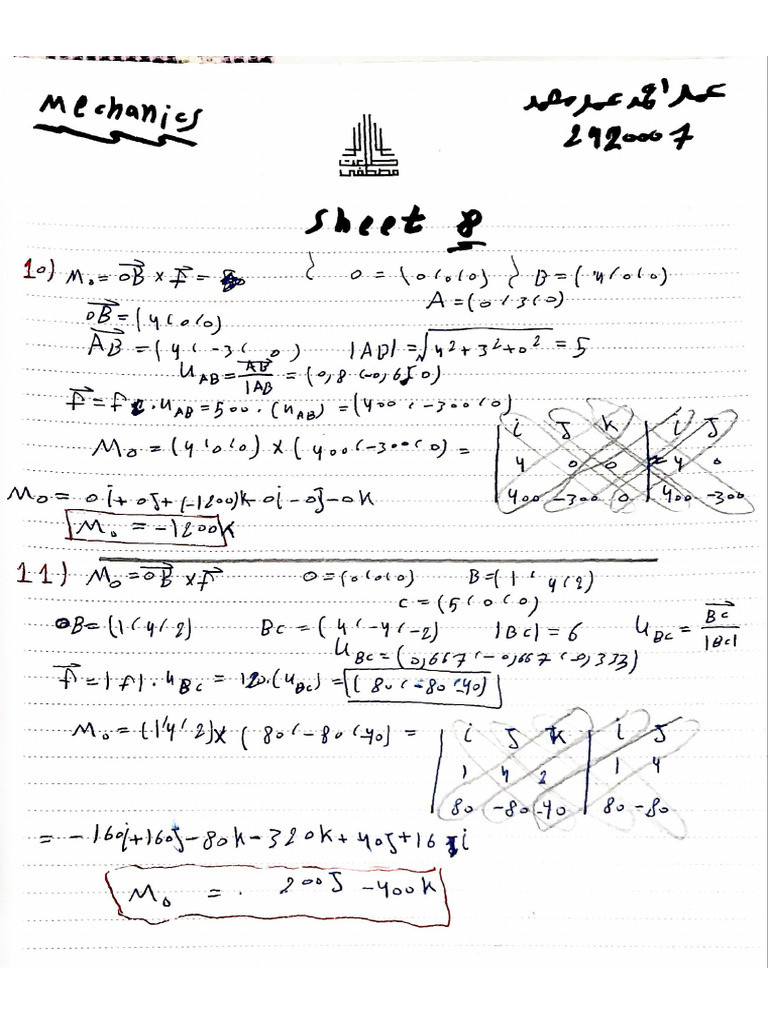 Mechanics
2920007
Sheet 8
10) M₀ = OB × F = { O = (0,0,0) } B = (4,0,0)
A = (0,3,0)
OB = (4,0,0)
AB = (4,-3,0) |AB| = √4²+3²+0² = 5
U_AB = AB/|AB = (0,8,-0,6,0)
F = F . U_AB = 500 . (U_AB) = (400,-300,0)
M₀ = (4,0,0) × (400,-300,0) =
i J K i J
4 0 0 4 0
400 -300 0 400 -300
M₀ = 0i + 0J + (-1200)k - 0i - 0J - 0k
M₀ = -1200k
11) M₀ = OB × F O = (0,0,0) B = (1,4,2)
C = (5,0,0)
OB = (1,4,2) BC = (4,-4,-2) |BC| = 6 U_BC = BC/|BC|
U_BC = (0,667,-0,667,-0,333)
F = |F| . U_BC = 120 . (U_BC) = (80,-80,-40)
M₀ = (1,4,2) × (80,-80,-40) =
i J K i J
1 4 2 1 4
80 -80 -40 80 -80
= -160i + 160J - 80k - 320k + 40J + 16 i
M₀ = . 200J - 400k